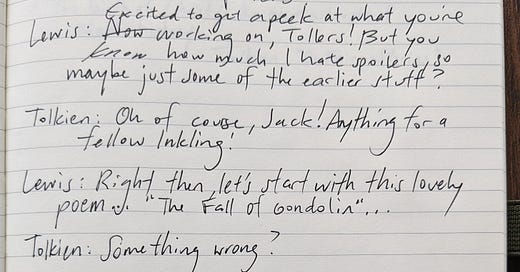 Excited to get a peek at what you're
Lewis: Now working on, Tollers! But you
know how much I hate spoilers, so
maybe just some of the earlier stuff?
Tolkien: Oh of course, Jack! Anything for a
fellow Inkling!
Lewis: Right then, let's start with this lovely
poem... "The Fall of Gondolin"...
Tolkien: Something wrong?